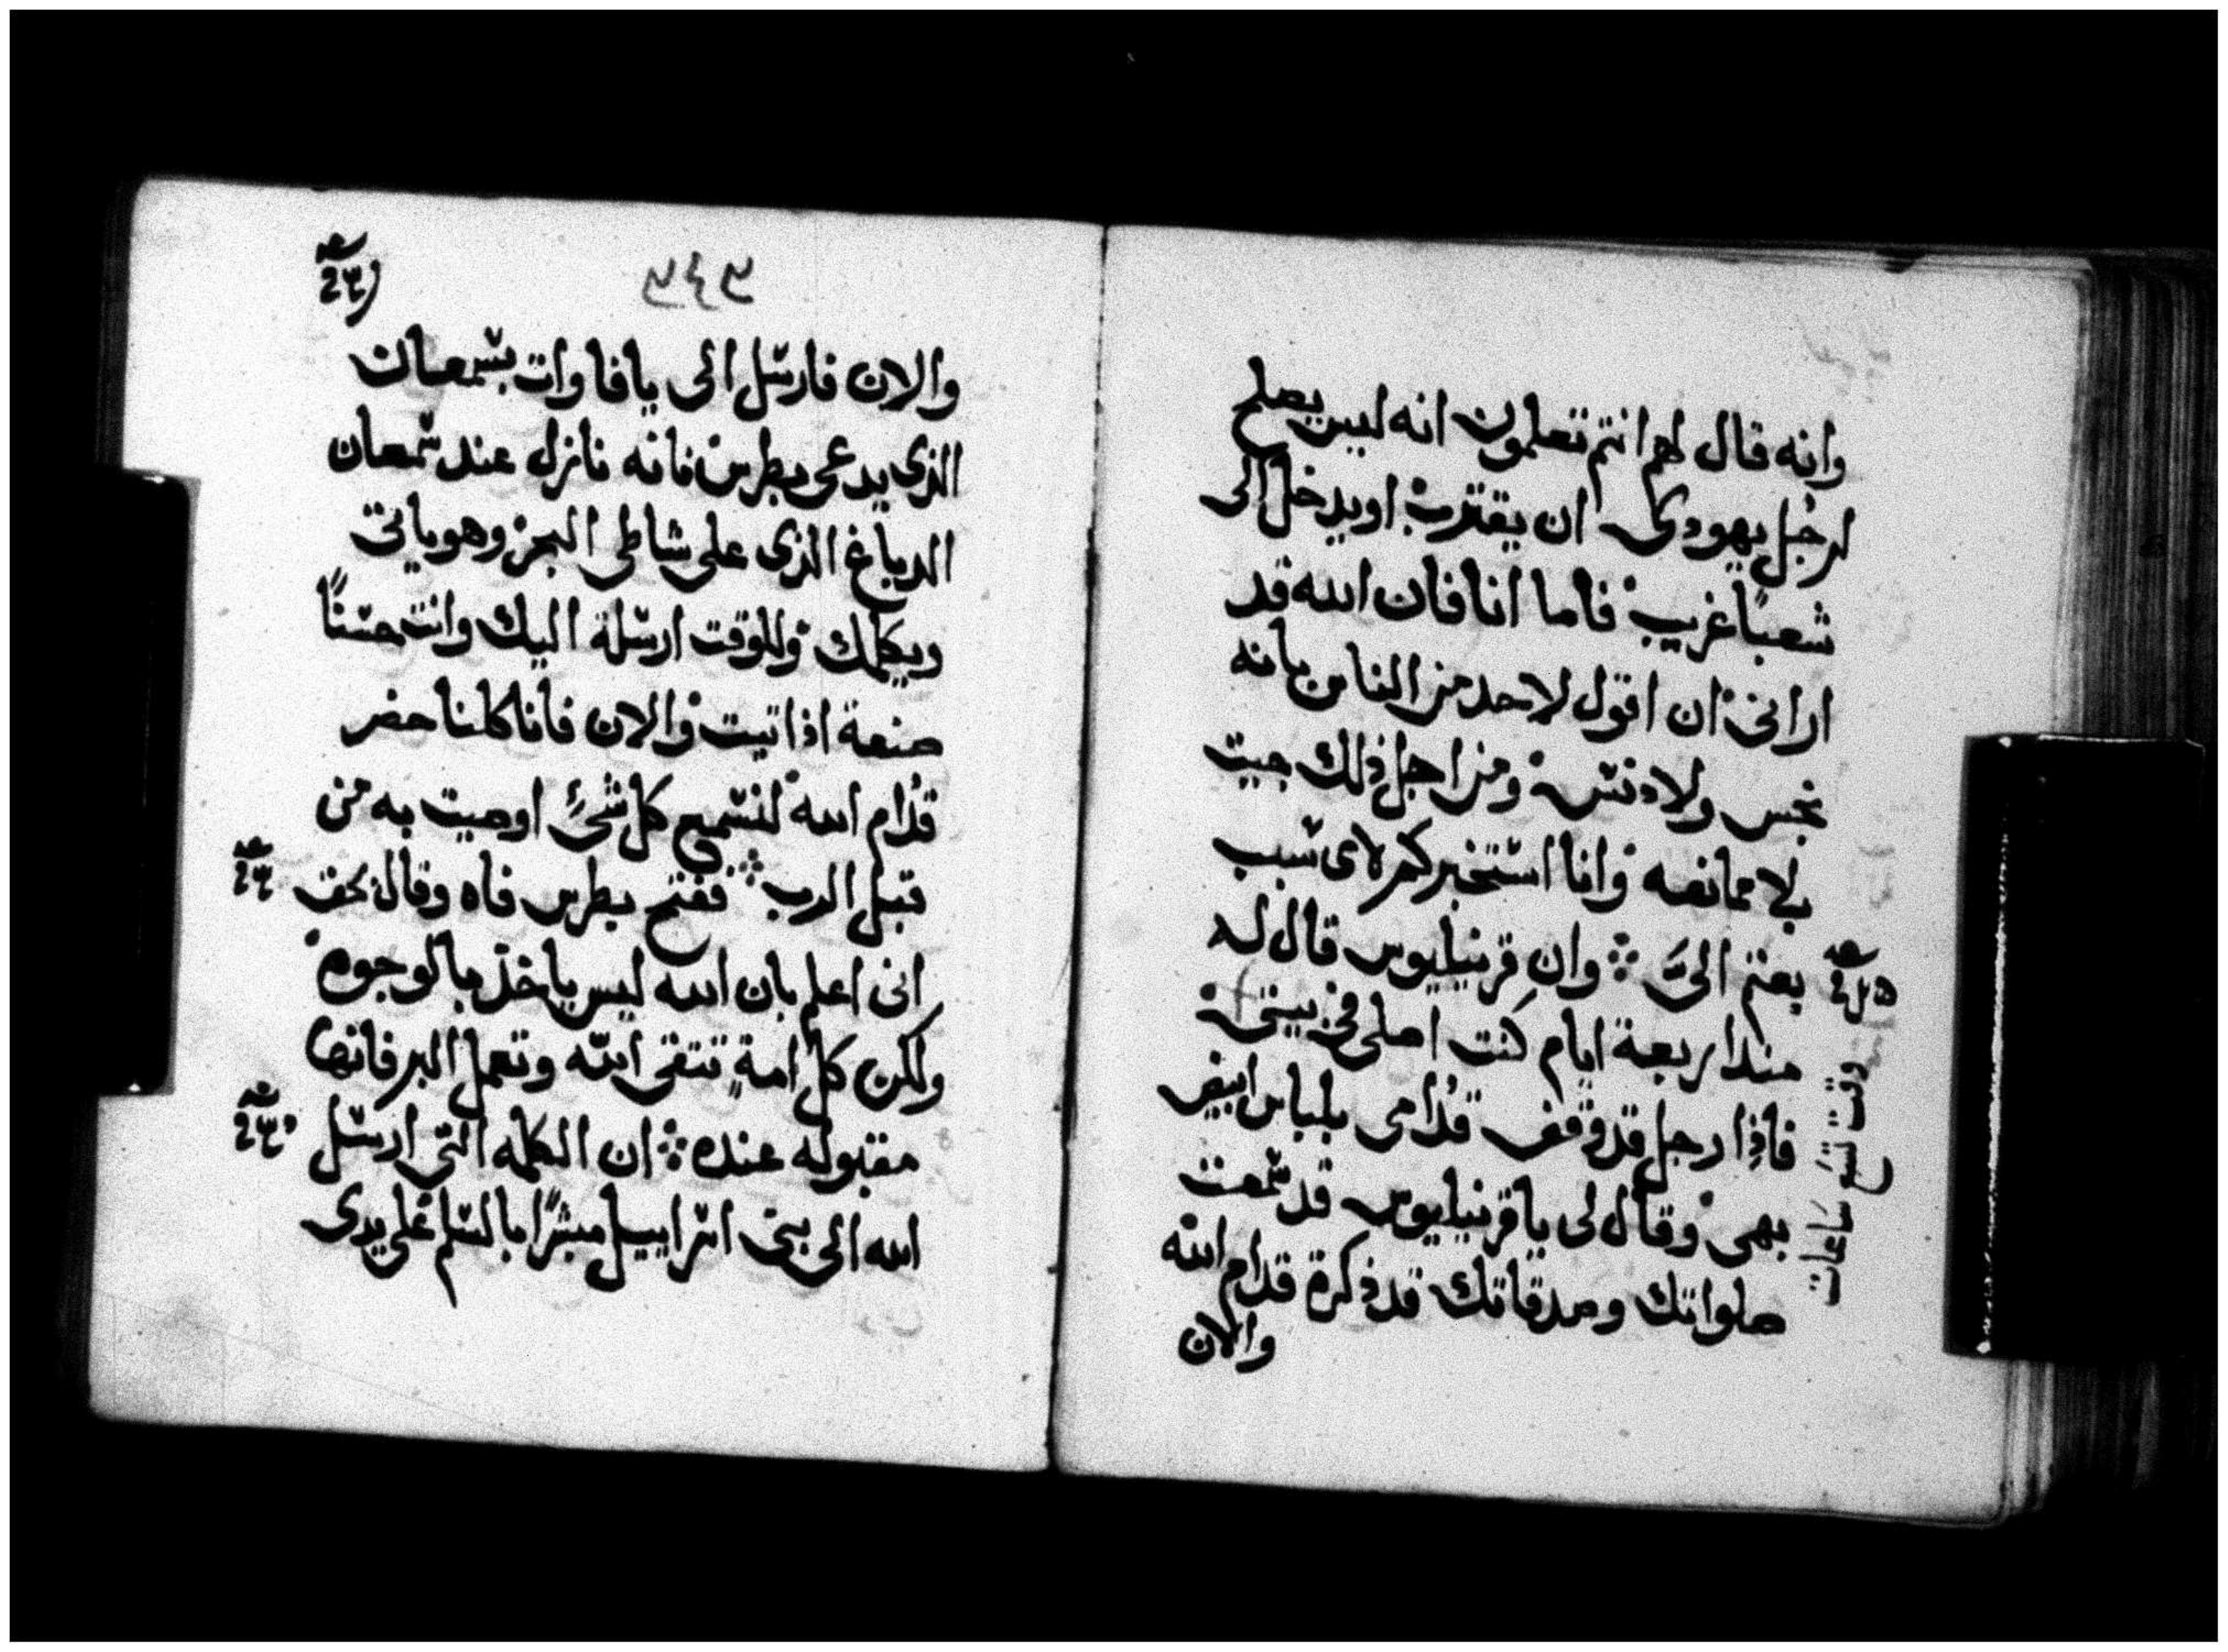 وانه قال لهم انتم تعلمون انه ليس يصلح
لرجل يهودى ان يقترب اويدخل الى
شعبًا غريب فاما انا فان الله قد
ارانى ان اقول لاحد من الناس بانه
نجس ولا دنس ومن اجل ذلك جيت
بلا ممانعه وانا استخبركم لاى سبب
بعتم الىَّ وان قرنيليوس قال له
منذ اربعة ايام كنت اصلى فى بيتى
فاذا رجل قد وقف قدامى بلباس ابيض
بهى وقال لى يا قرنيليوس قد سمعت
صلواتك وصدقاتك قد ذكرة قدام الله
والان
وقت تسع ساعات
والان فارسل الى يافا وات بسمعان
الذى يدعى بطرس فانه نازل عند سمعان
الدباغ الذى على شاطى البحر وهو ياتى
ويكلمك وللوقت ارسلة اليك وانت حسنًا
صنعة اذ اتيت والان فانا كلنا حضر
قدام الله لنسمع كل شئ اوصيت به من
قبل الرب ففتح بطرس فاه وقال بحق
انى اعلم بان الله ليس ياخذ بالوجوه
ولكن كل امةٍ تتقى الله وتعمل البر فانها
مقبوله عنده ان الكلمه التى ارسل
الله الى بنى اسراييل مبشرًا بالسلم على يدى